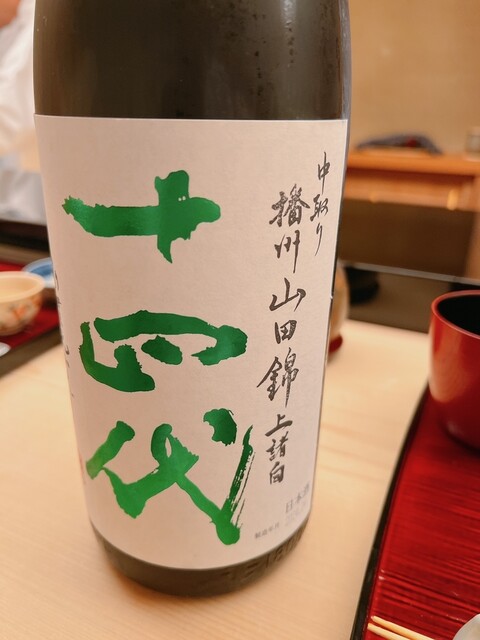 中取り
播州山田錦上諸白
十四代
日本酒
製造年月